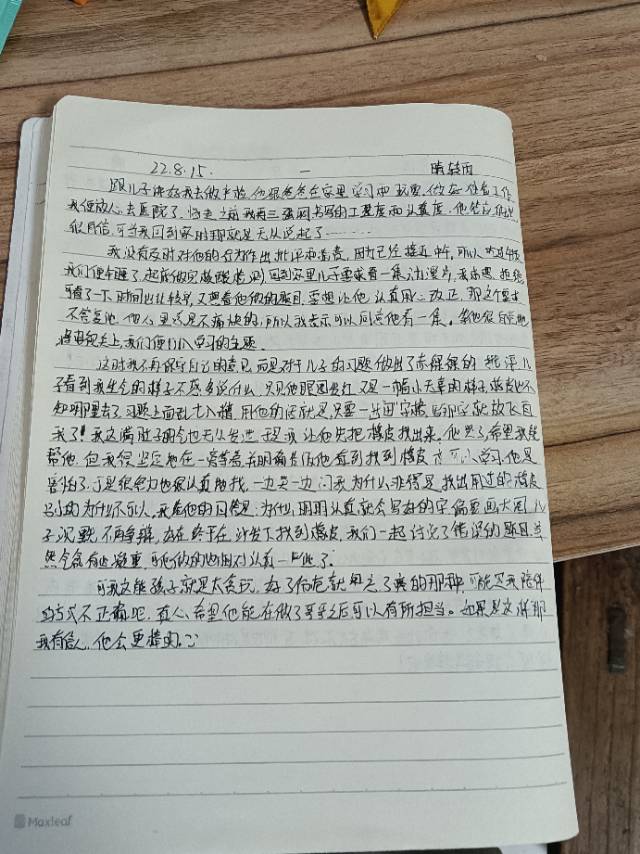 22.8.15. 一 晴转雨
跟儿子讲好我去做产检,他跟爸爸在家里学习和玩耍,做好准备工作
我便放心去医院了,临走之前我再三强调书写的工整度和认真度,他答应
可当我回到家时现就是无从说起了……
我没有及时对他的行为作出批评和责,因为已经接近中午,所以吃过午饭
我们便午睡了,起床做完核酸 回到家里儿子要求看一集动漫片,我
看了一下时间也比较, 又想着他做的题目,要想让他认真用心改正,那这个要求
不答复他,他心里总是不痛快的,所以我表示可以同意他看一集。
将电视关上,我们便 学习的主题。
这时我不再保守自己的意见,而是对于儿子的习题做出了赤裸裸的批评,儿
子看到我生气的样子不敢多说什么,只见他眼圈发红,又是一幅小天真的样子,橡皮也不
知哪里去了,习题上面乱七八糟,用他的话就是,只要一出田字格,那字就放飞自
我了!我这满肚子的气也无处发泄,于是我让他先把橡皮找出来,他哭了,希望我能
帮他,但我很坚定地在一旁等着,并明确告诉他看到找到橡皮才可以学习,他是
害怕了,于是很努力也很认真地找,一边哭一边问我为什么非得是找出用过的橡皮
别的为什么不可以,我看他的习题是:为什么明明认真就会写好的字偏要画大圈,儿
子沉默,不再争辩,好在终于在沙发下找到橡皮,我们一起讨论了错误的题目,当
然气氛有些凝重,可他做的也相对认真一些了。
可我这熊孩子就是太贪玩,好了伤疤就忘了痛的那种,可能是我陪伴
的方式不正确吧,真心希望他能在做了哥哥之后可以有所担当。如果是这样那
我有信心,他会更棒的。
Maxleaf